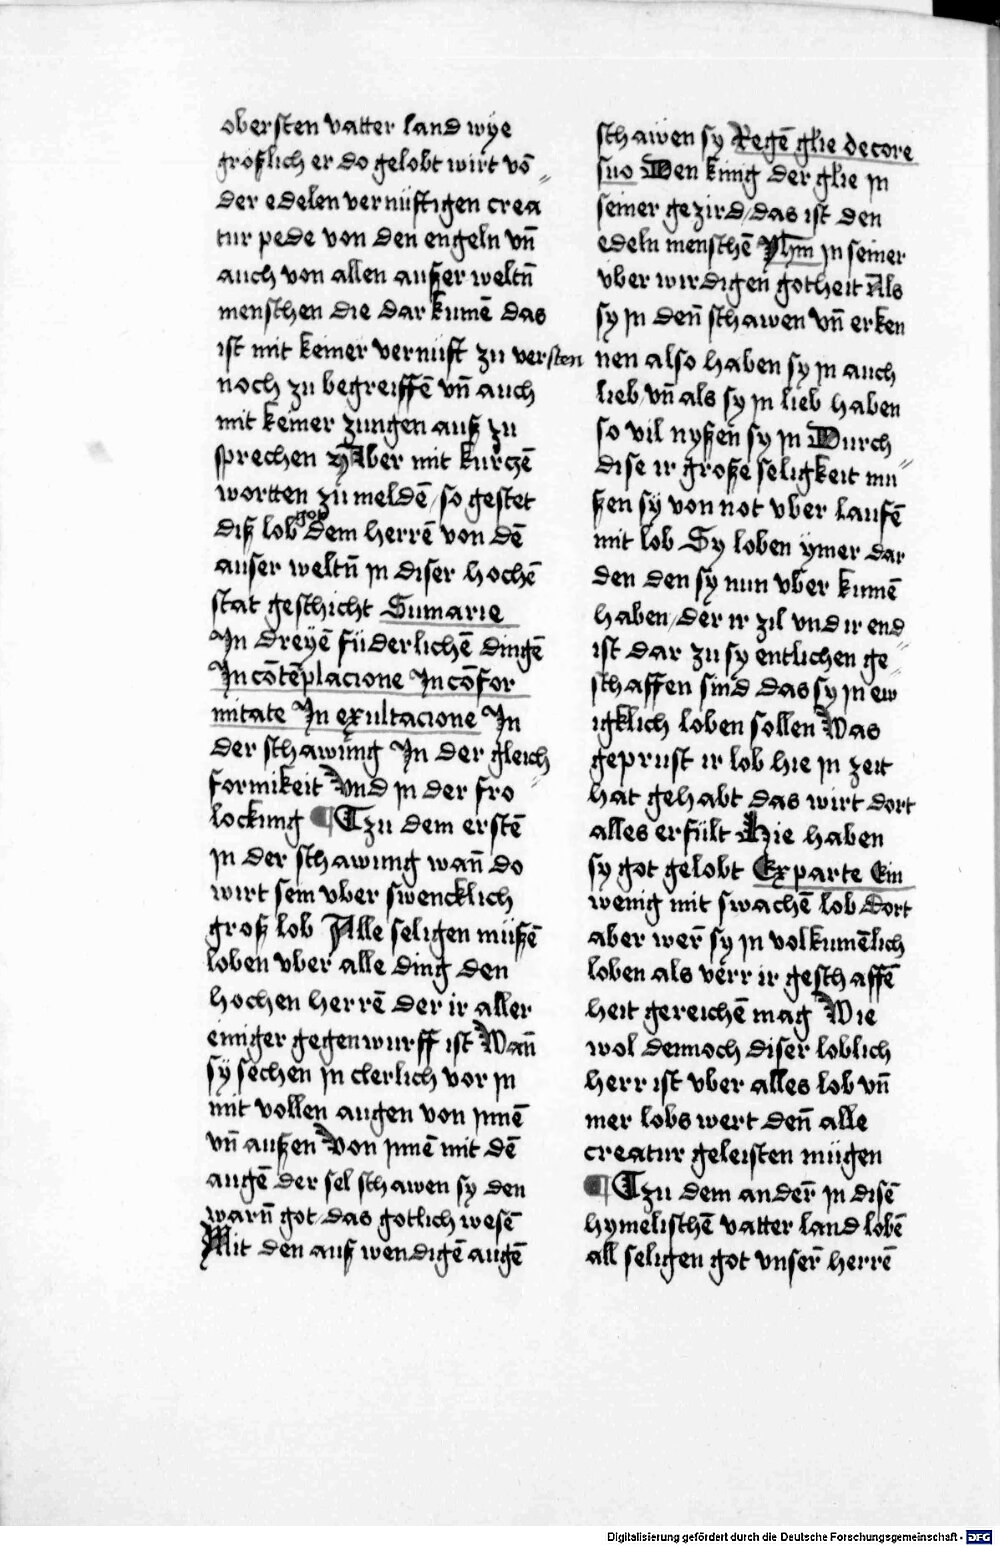 obersten vatter land wye
größlich er do gelobt wirt vō
der edelen vernüftigen crea
tur pede von den engeln vn̄
auch von allen außer weltn̄
menschen die dar kumē das
ist mit keiner vernuft zu versten
noch zu begreiffē vn̄ auch
mit keiner zungen auß zu
sprechen Aber mit kurczē
wortten zu meldē / so gestet
diß lob got dem herrē von dē
auser weltn̄ in diser hochē
stat geschicht Sumarie
In dreyē füderlichē dingē
In cōtēplacione In cōfor
mitate In exultacione In
der schawung In der gleich
formikeit Vnd in der fro
lockung ¶ Tzu dem erstē
in der schawung wan̄ do
wirt sein vber swencklich
groß lob Alle seligen müßē
loben vber alle ding den
hochen herrē der ir aller
einiger gegenwurff ist Wan̄
sy sechen in clerlich vor in
mit vollen augen von innē
vn̄ außen Von innē mit dē
augē der sel schawen sy den
warn̄ got / das gotlich wesē
Mit den auß wendigē augē
schawen sy Regē glie decore
suo Den kinig der glie in
seiner gezird / das ist den
edeln menschē Yhm in seiner
vber wirdigen gotheit Als
sy in den̄ schawen vn̄ erken
nen also haben sy in auch
lieb / vn̄ als sy in lieb haben
so vil nyßen sy in Durch
dise ir große seligkeit mu
ßen sy von not vber laufē
mit lob Sy loben ymer dar
den den sy nun vber kumē
haben / der ir zil vnd ir end
ist dar zu sy entlichen ge
schaffen sind das sy in ew
igklich loben sollen Was
geprust ir lob hie in zeit
hat gehabt das wirt dort
alles erfült Hie haben
sy got gelobt Ex parte Ein
wenig mit swachē lob Dort
aber wer̄ sy in volkumēlich
loben als verr ir geschaffē
heit gereichē mag Wie
wol dennoch diser loblich
herr ist vber alles lob vn̄
mer lobs wert den̄ alle
creatur geleisten mügen
¶ Tzu dem ander̄ in disē
hymelischē vatter land lobē
all seligen got vnser̄ herrē
Digitalisierung gefördert durch die Deutsche Forschungsgemeinschaft - DFG